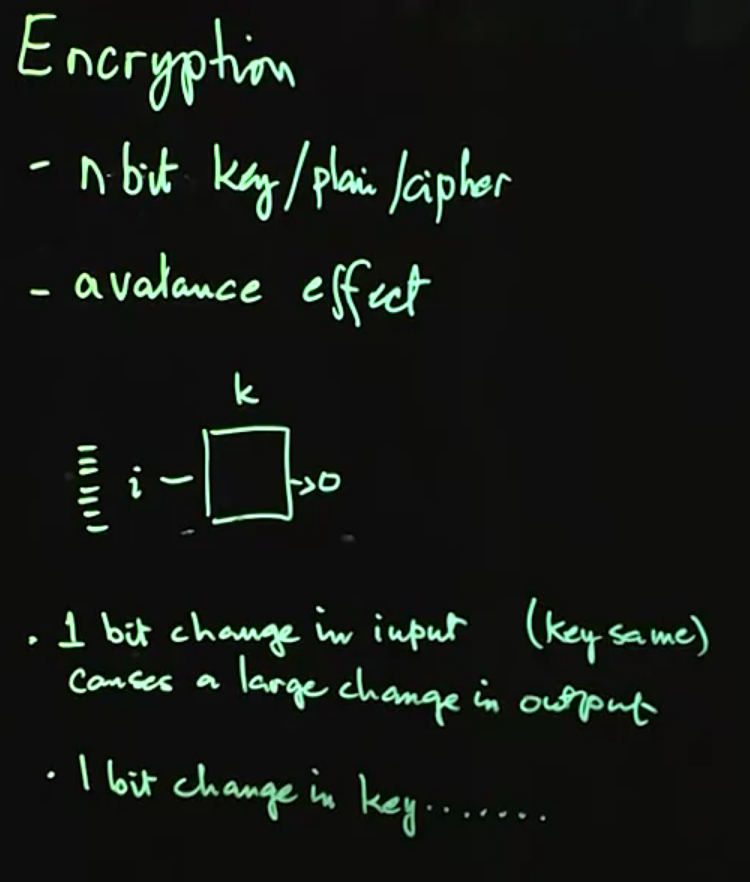 Encryption
- n bit key/plain/cipher
- avalance effect
k
i
o
. 1 bit change in input (key same)
causes a large change in output
. 1 bit change in key.......